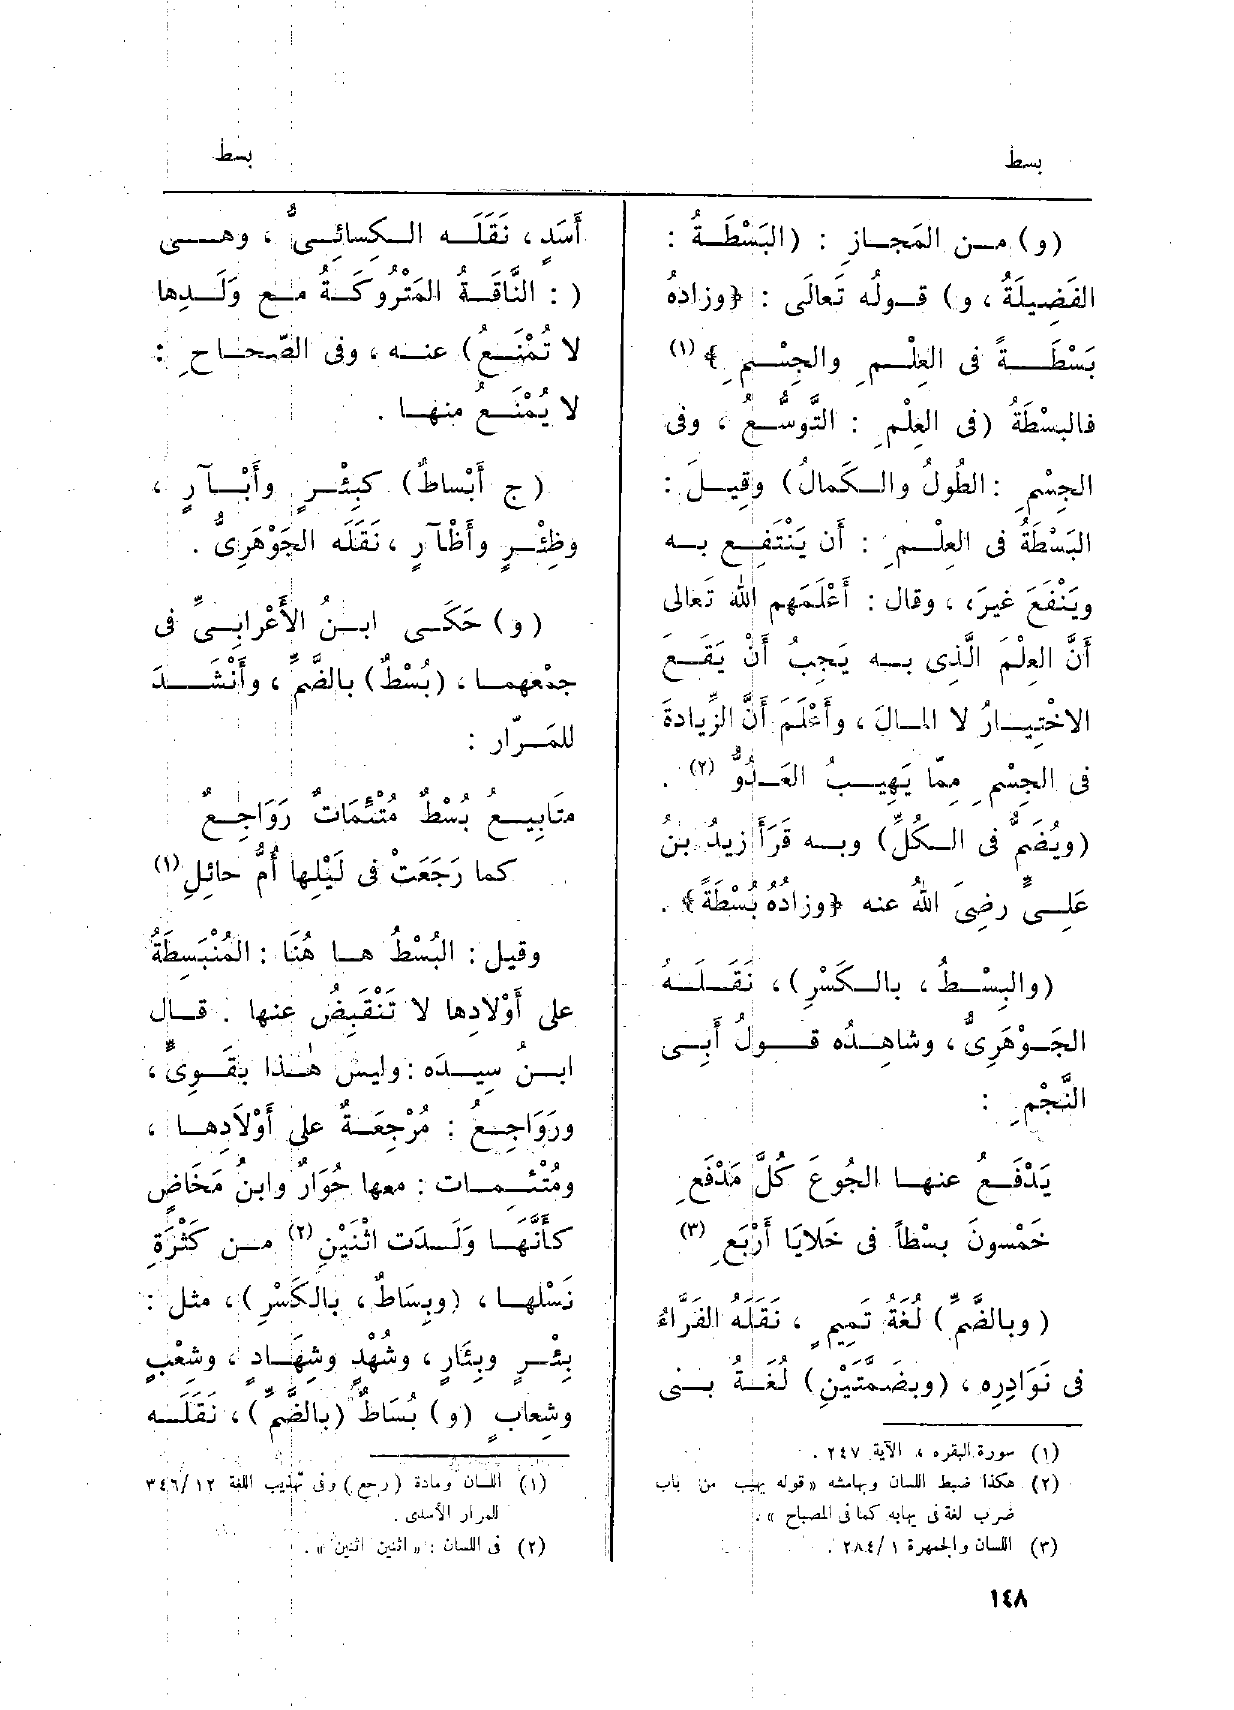 بسط
بسط
(و) مـن المَجـازِ : (البَسْطَـةُ :
الفَضِيلةُ ، و) قـولُه تَعالَى : ﴿وزادَهُ
بَسْطَـةً فى العِلْـمِ والجِسْـمِ﴾ (١)
فالبسْطَةُ (فى العِلْمِ : التَّوسُّعُ ، وفى
الجِسْمِ : الطُولُ والكَمالُ) وقِيلَ :
البَسْطَةُ فى العِلْـمِ : أَن يَنْتَفِـع بـه
ويَنْفَعَ غيرَه ، وقال : أَعْلَمَهم اللهُ تَعالى
أَنَّ العِلْمَ الَّذِى بـه يَجبُ أَنْ يَقَـع
الاخْتِيـارُ لا المـالَ ، وأَعْلَمَ أَنَّ الزِّيادةَ
فى الجِسْمِ مِمّا يَهِيـبُ العَـدُوُّ (٢) .
(ويُضَمُّ فى الـكُلِّ) وبـه قَرَأَ زيدُ بنُ
عَلِـىٍّ رضِىَ اللهُ عنه ﴿وزادَهُ بُسْطَةً﴾ .
(والبِسْـطُ ، بالـكَسْرِ) ، نَقَـلَـهُ
الجَـوْهَرِىُّ ، وشاهِـدُه قـولُ أَبِـى
النَّجْمِ :
يَدْفَـعُ عنهـا الجُوعَ كُلَّ مَدْفَعِ
خَمْسونَ بِسْطاً فى خَلايَا أَرْبَعِ (٣)
(وبالضَّمِّ) لُغَةُ تَمِيمٍ ، نَقَلَهُ الفَرَّاءُ
فى نَوَادِرِه ، (وبضَمَّتَيْنِ) لُغَـةُ بـنى
(١) سورة البقره ، الآية ٢٤٧ .
(٢) هكذا ضبط اللسان وبهامشه «قوله يهيب من باب
ضرب لغة فى يهابه كما فى المصباح» .
(٣) اللسان والجمهرة ١/ ٢٨٤ .
أَسَدٍ ، نَقَلَـه الـكِسائِـىُّ ، وهـى
( : النَّاقَـةُ المَتْرُوكَـةُ مـع وَلَـدِها
لا تُمْنَـعُ) عنـه ، وفى الصّحـاحِ :
لا يُمْنَـعُ منهـا .
(ج أَبْساطٌ) كبِئْـرٍ وأَبْـآرٍ ،
وظِئْـرٍ وأَظْآرٍ ، نَقَلَه الجَوْهَرِىُّ .
(و) حَكَـى ابـنُ الأَعْرابِـىِّ فى
جَمْعِهمـا ، (بُسْطٌ) بالضَّمِّ ، وأَنْشَـدَ
للمَـرّار :
مَتَابِيـعُ بُسْطٌ مُتْئِمَاتٌ رَوَاجِـعٌ
كما رَجَعَتْ فى لَيْلِها أُمُّ حائِلِ (١)
وقيل : البُسْطُ هـا هُنَا : المُنْبَسِطَةُ
على أَوْلادِها لا تَنْقَبِضُ عنها . قـال
ابـنُ سِيـدَه : وليس هٰـذا بقَـوِىٍّ ،
ورَوَاجِـعُ : مُرْجِعَـةٌ على أَوْلاَدِهـا ،
ومُتْئِـمـات : معها حُوَارٌ وابنُ مَخَاضٍ
كأَنَّهـا وَلَـدَت اثْنَيْنِ (٢) مـن كَثْرَةِ
نَسْلهـا ، (وبِسَاطٌ ، بالكَسْرِ) ، مثل :
بِئْـرٍ وبِئَارٍ ، وشُهْدٍ وشِهَـادٍ ، وشِعْبٍ
وشِعابٍ (و) بُسَاطٌ (بالضَّمِّ) ، نَقَلَـه
(١) اللسان ومادة (رجع) وفى تهذيب اللغة ١٢/ ٣٤٦
للمرار الأسدى .
(٢) فى اللسان : « اثنين اثنين » .
١٤٨